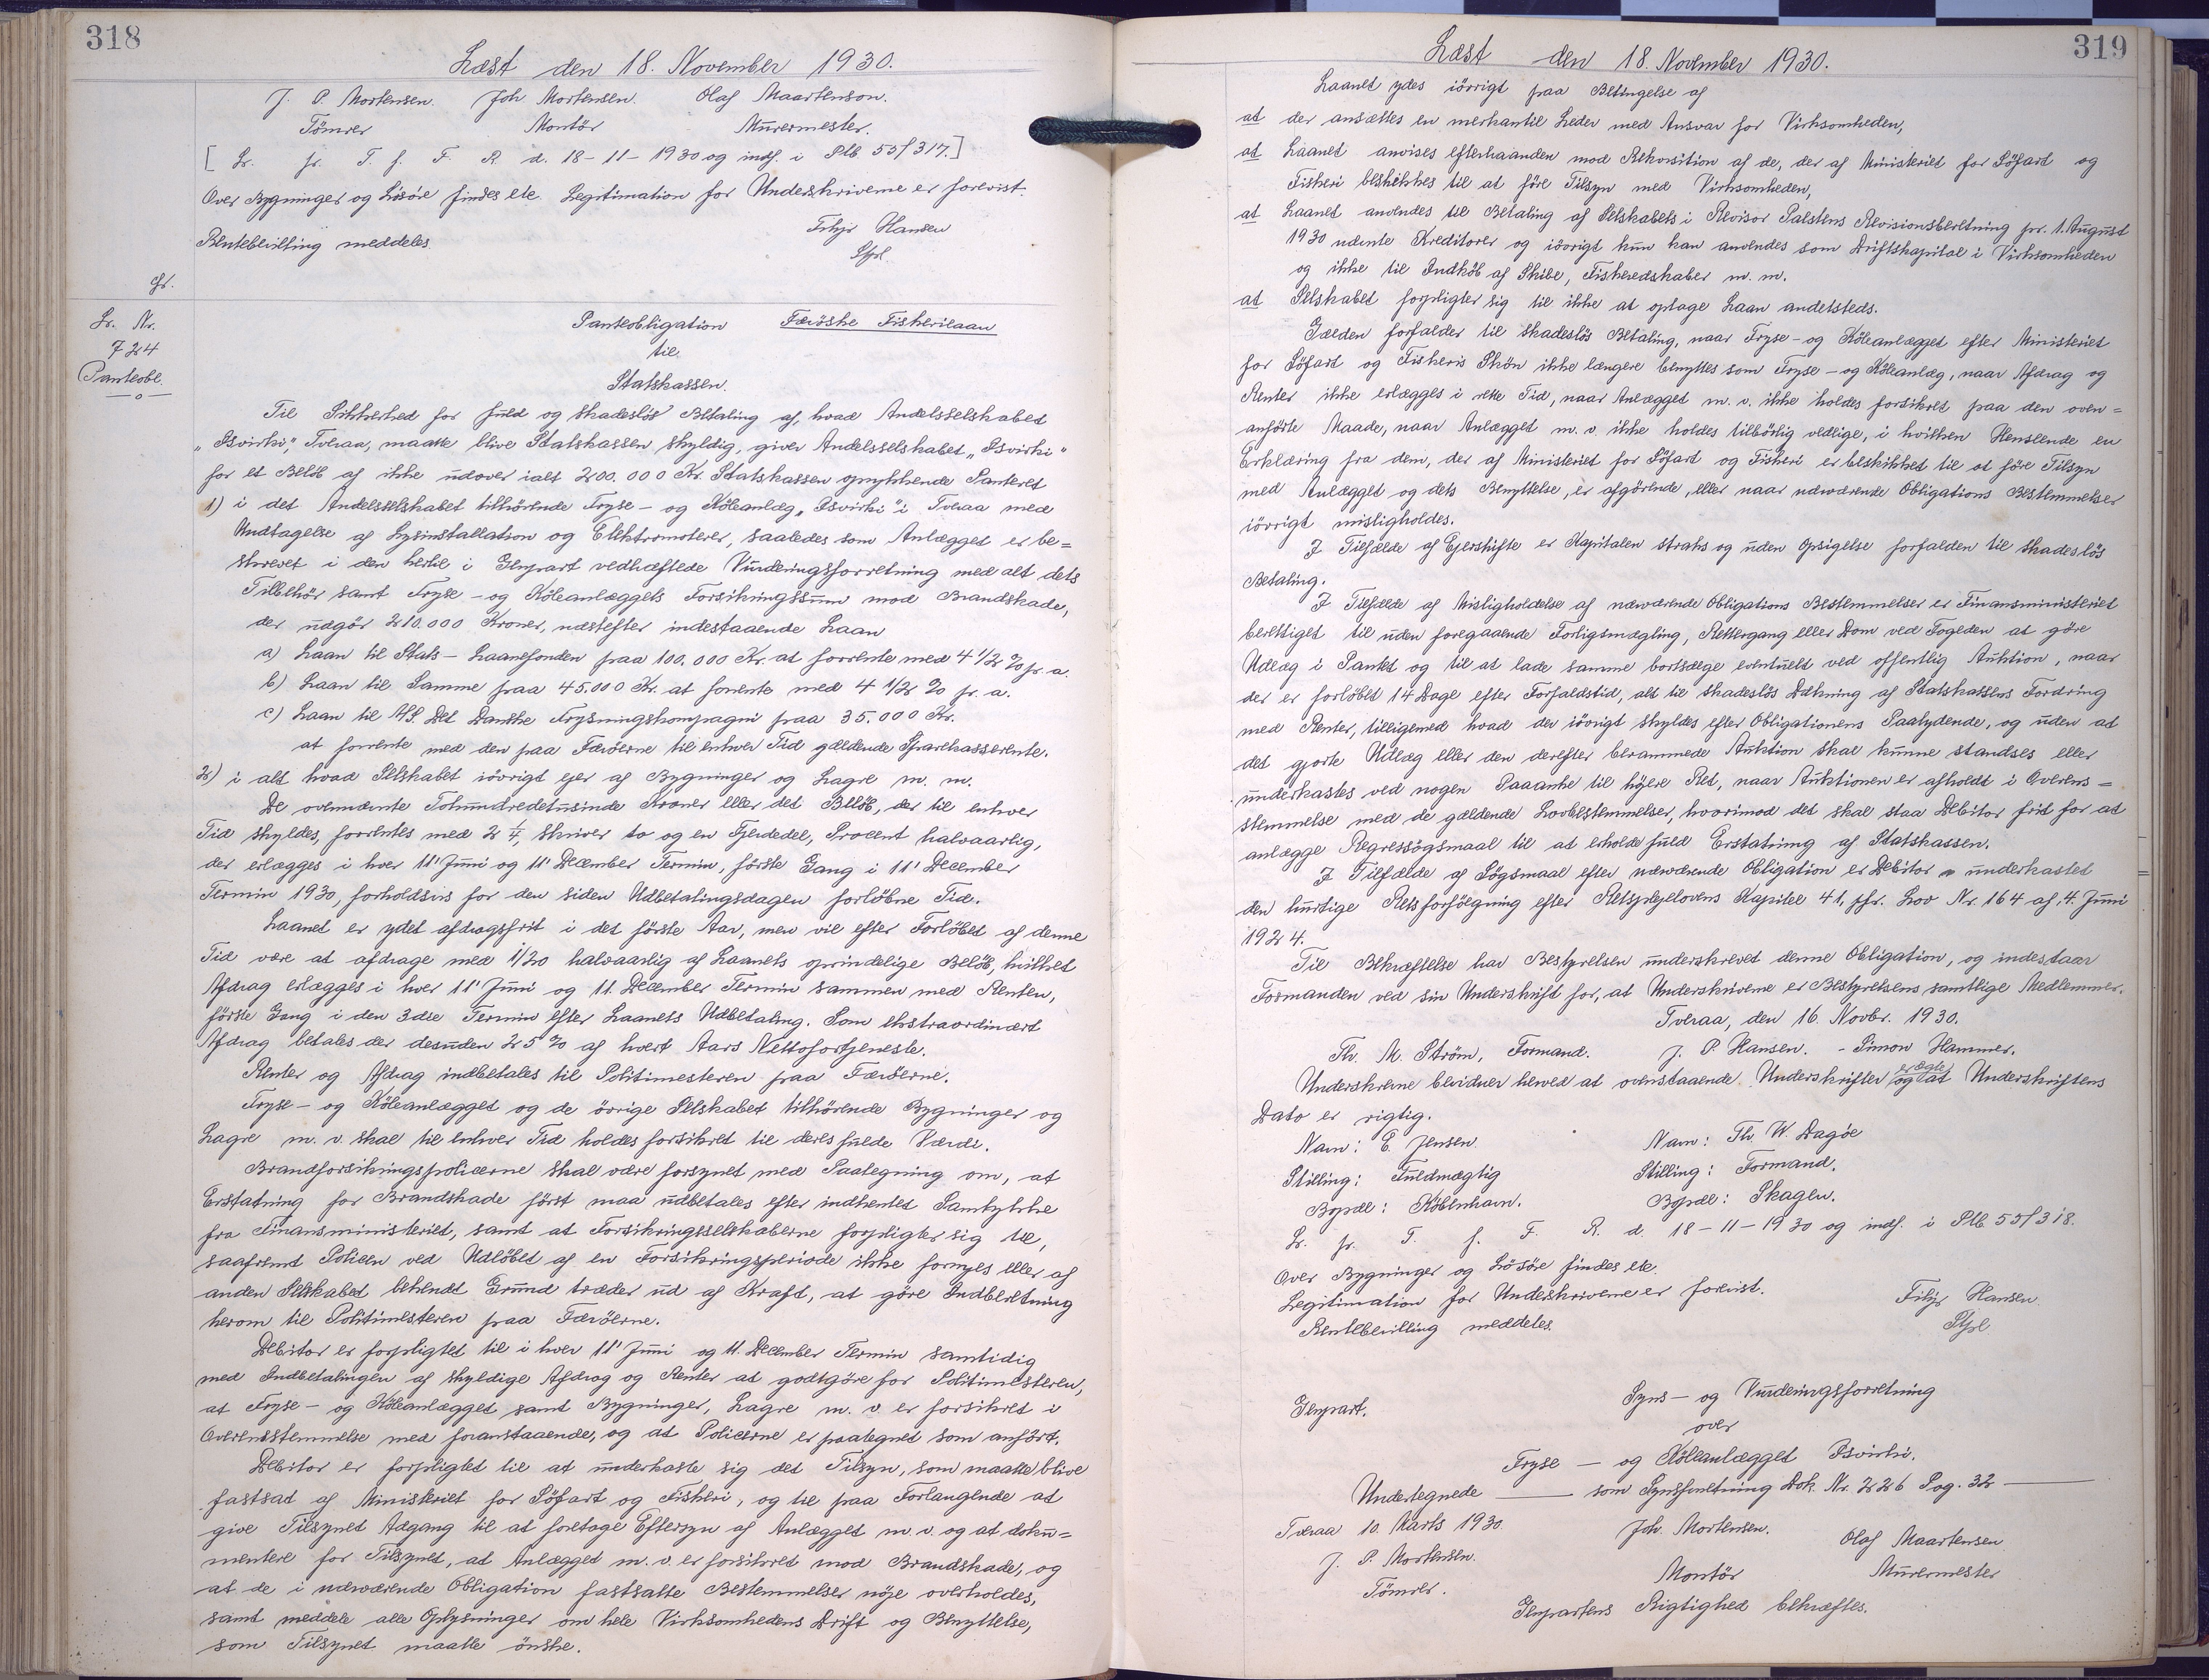 318
Læst den 18. November 1930.
J. P. Mortensen. Joh Mortensen. Olaf Maartenson.
Tömrer Montör Murermester.
[ Lr. fr. T. f. F. R. d. 18-11-1930 og indf. i Plb. 55/317.]
Over Bygninger og Lösöre findes ele. Legitimation for Underskriverne er forevist.
Filip Hansen
Rentebevilling meddeles.
Stfl.
gr.
Lr. Nr.
724
Panteobl.
Panteobligation Færöske Fiskerilaan
til
Statskassen.
Til Sikkerhed for fuld og skadeslös Betaling af, hvad Andelsselskabet
„Isvirki", Tveraa, maatte blive Statskassen skyldig, giver Andelsselskabet „Isvirki"
for et Belöb af ikke udover ialt 200.000 Kr. Statskassen oprykkende Panteret
1) i det Andelsselskabet tilhörende Fryse- og Köleanlæg „Isvirki" i Tveraa med
Undtagelse af Lysinstallation og Elektromotorer, saaledes som Anlægget er be=
skrevet i den hertil i Genpart vedhæftede Vurderingsforretning med alt dets
Tilbehör samt Fryse- og Köleanlæggets Forsikringssum mod Brandskade,
der udgör 210.000 Kroner, næstefter indestaaende Laan
a) Laan til Stats-Laanefonden paa 100.000 Kr. at forrente med 4 1/2 % pr. a.
b) Laan til Samme paa 45.000 Kr. at forrente med 4 1/2 % pr. a.
c) Laan til A/S. Det Danske Frysningskompagni paa 35.000 Kr.
at forrente med den paa Færöerne til enhver Tid gældende Sparekasserente.
2) i alt hvad Selskabet iövrigt ejer af Bygninger og Lagre m. m.
De ovennævnte Tohundredetusinde Kroner eller det Belöb, der til enhver
Tid skyldes, forrentes med 2 1/4, skriver to og en Fjerdedel, Procent halvaarlig,
der erlægges i hver 11' Juni og 11' December Termin, förste Gang i 11' December
Termin 1930, forholdsvis for den siden Udbetalingsdagen forlöbne Tid.
Laanet er ydet afdragsfrit i det förste Aar, men vil efter Forlöbet af denne
Tid være at afdrage med 1/20 halvaarlig af Laanets oprindelige Belöb, hvilket
Afdrag erlægges i hver 11' Juni og 11. December Termin sammen med Renten,
förste Gang i den 3die Termin efter Laanets Udbetaling. Som ekstraordinært
Afdrag betales der desuden 25 % af hvert Aars Nettofortjeneste.
Renter og Afdrag indbetales til Politimesteren paa Færöerne.
Fryse- og Köleanlægget og de övrige Selskabet tilhörende Bygninger og
Lagre m. v. skal til enhver Tid holdes forsikret til deres fulde Værdi.
Brandforsikringspolicerne skal være forsynet med Paategning om, at
Erstatning for Brandskade först maa udbetales efter indhentet Samtykke
fra Finansministeriet, samt at Forsikringsselskaberne forpligter sig til,
saafremt Policen ved Udlöbet af en Forsikringsperiode ikke fornyes eller af
anden Selskabet bekendt Grund træder ud af Kraft, at göre Indberetning
herom til Politimesteren paa Færöerne.
Debitor er forpligtet til i hver 11' Juni og 11. December Termin samtidig
med Indbetalingen af skyldige Afdrag og Renter at godtgöre for Politimesteren,
at Fryse- og Köleanlægget samt Bygninger, Lagre m. v. er forsikret i
Overensstemmelse med foranstaaende, og at Policerne er paategnet som anfört.
Debitor er forpligtet til at underkaste sig det Tilsyn, som maatte blive
fastsat af Ministeriet for Söfart og Fiskeri, og til paa Forlangende at
give Tilsynet Adgang til at foretage Eftersyn af Anlægget m. v. og at doku=
mentere for Tilsynet, at Anlægget m. v. er forsikret mod Brandskade, og
at de i nærværende Obligation fastsatte Bestemmelser nöje overholdes,
samt meddele alle Oplysninger om hele Virksomhedens Drift og Benyttelse,
som Tilsynet maatte önske.
319
Læst den 18. November 1930.
Laanet ydes iövrigt paa Betingelse af
at der ansættes en merkantil Leder med Ansvar for Virksomheden,
at Laanet anvises efterhaanden mod Rekvisition af de, der af Ministeriet for Söfart og
Fiskeri beskikkes til at före Tilsyn med Virksomheden,
at Laanet anvendes til Betaling af Selskabets i Revisor Palstens Revisionsberetning pr. 1. August
1930 nævnte Kreditorer og iövrigt kun kan anvendes som Driftskapital i Virksomheden
og ikke til Indköb af Skibe, Fiskeredskaber m. m.
at Selskabet forpligter sig til ikke at optage Laan andetsteds.
Gælden forfalder til skadeslös Betaling, naar Fryse- og Köleanlægget efter Ministeriet
for Söfart og Fiskeris Skön ikke længere benyttes som Fryse- og Köleanlæg, naar Afdrag og
Renter ikke erlægges i rette Tid, naar Anlægget m. v. ikke holdes forsikret paa den oven=
anförte Maade, naar Anlægget m. v. ikke holdes tilbörlig vedlige, i hvilken Henseende en
Erklæring fra dem, der af Ministeriet for Söfart og Fiskeri er beskikket til at före Tilsyn
med Anlægget og dets Benyttelse, er afgörende, eller naar nærværende Obligations Bestemmelser
iövrigt misligholdes.
I Tilfælde af Ejerskifte er Kapitalen straks og uden Opsigelse forfalden til skadeslös
Betaling.
I Tilfælde af Misligholdelse af nærværende Obligations Bestemmelser er Finansministeriet
berettiget til uden foregaaende Forligsmægling, Rettergang eller Dom ved Fogeden at göre
Udlæg i Pantet og til at lade samme bortsælge eventuelt ved offentlig Auktion, naar
der er forlöbet 14 Dage efter Forfaldstid, alt til skadeslös Dækning af Statskassens Fordring
med Renter, tilligemed hvad der iövrigt skyldes efter Obligationens Paalydende, og uden at
det gjorte Udlæg eller den derefter berammede Auktion skal kunne standses eller
underkastes ved nogen Paaanke til höjere Ret, naar Auktionen er afholdt i Overens=
stemmelse med de gældende Lovbestemmelser, hvorimod det skal staa Debitor frit for at
anlægge Regressögsmaal til at erholde fuld Erstatning af Statskassen.
I Tilfælde af Sögsmaal efter nærværende Obligation er Debitor underkastet
den hurtige Retsforfölgning efter Retsplejelovens Kapitel 41, jfr. Lov Nr. 164 af 4. Juni
1924.
Til Bekræftelse har Bestyrelsen underskrevet denne Obligation, og indestaar
Formanden ved sin Underskrift for, at Underskriverne er Bestyrelsens samtlige Medlemmer.
Tveraa, den 16. Novbr. 1930.
Th. M. Ström, Formand. J. P. Hansen. - Simon Hammer.
Underskrevne bevidner herved at ovenstaaende Underskrifter er ægte og at Underskriftens
Dato er rigtig.
Navn: E. Jensen Navn: Th. W. Dagöe
Stilling: Fuldmægtig Stilling: Formand.
Bopæl: Köbenhavn. Bopæl: Skagen.
Lr. fr. T. f. F. R. d. 18-11-1930 og indf. i Plb 55/318.
Over Bygninger og Lösöre findes ele.
Legitimation for Underskriverne er forevist. Filip Hansen
Rentebevilling meddeles. Stfl
Syns- og Vurderingsforretning
Genpart.
over
Fryse- og Köleanlægget Isvirki.
Undertegnede — som Synsforretning Dok. Nr. 226 Pag. 32 —
Tveraa 10. Marts 1930. Joh. Mortensen. Olaf Maartensen
J. P. Mortensen. Montör Murermester
Tömrer.
Genpartens Rigtighed bekræftes.